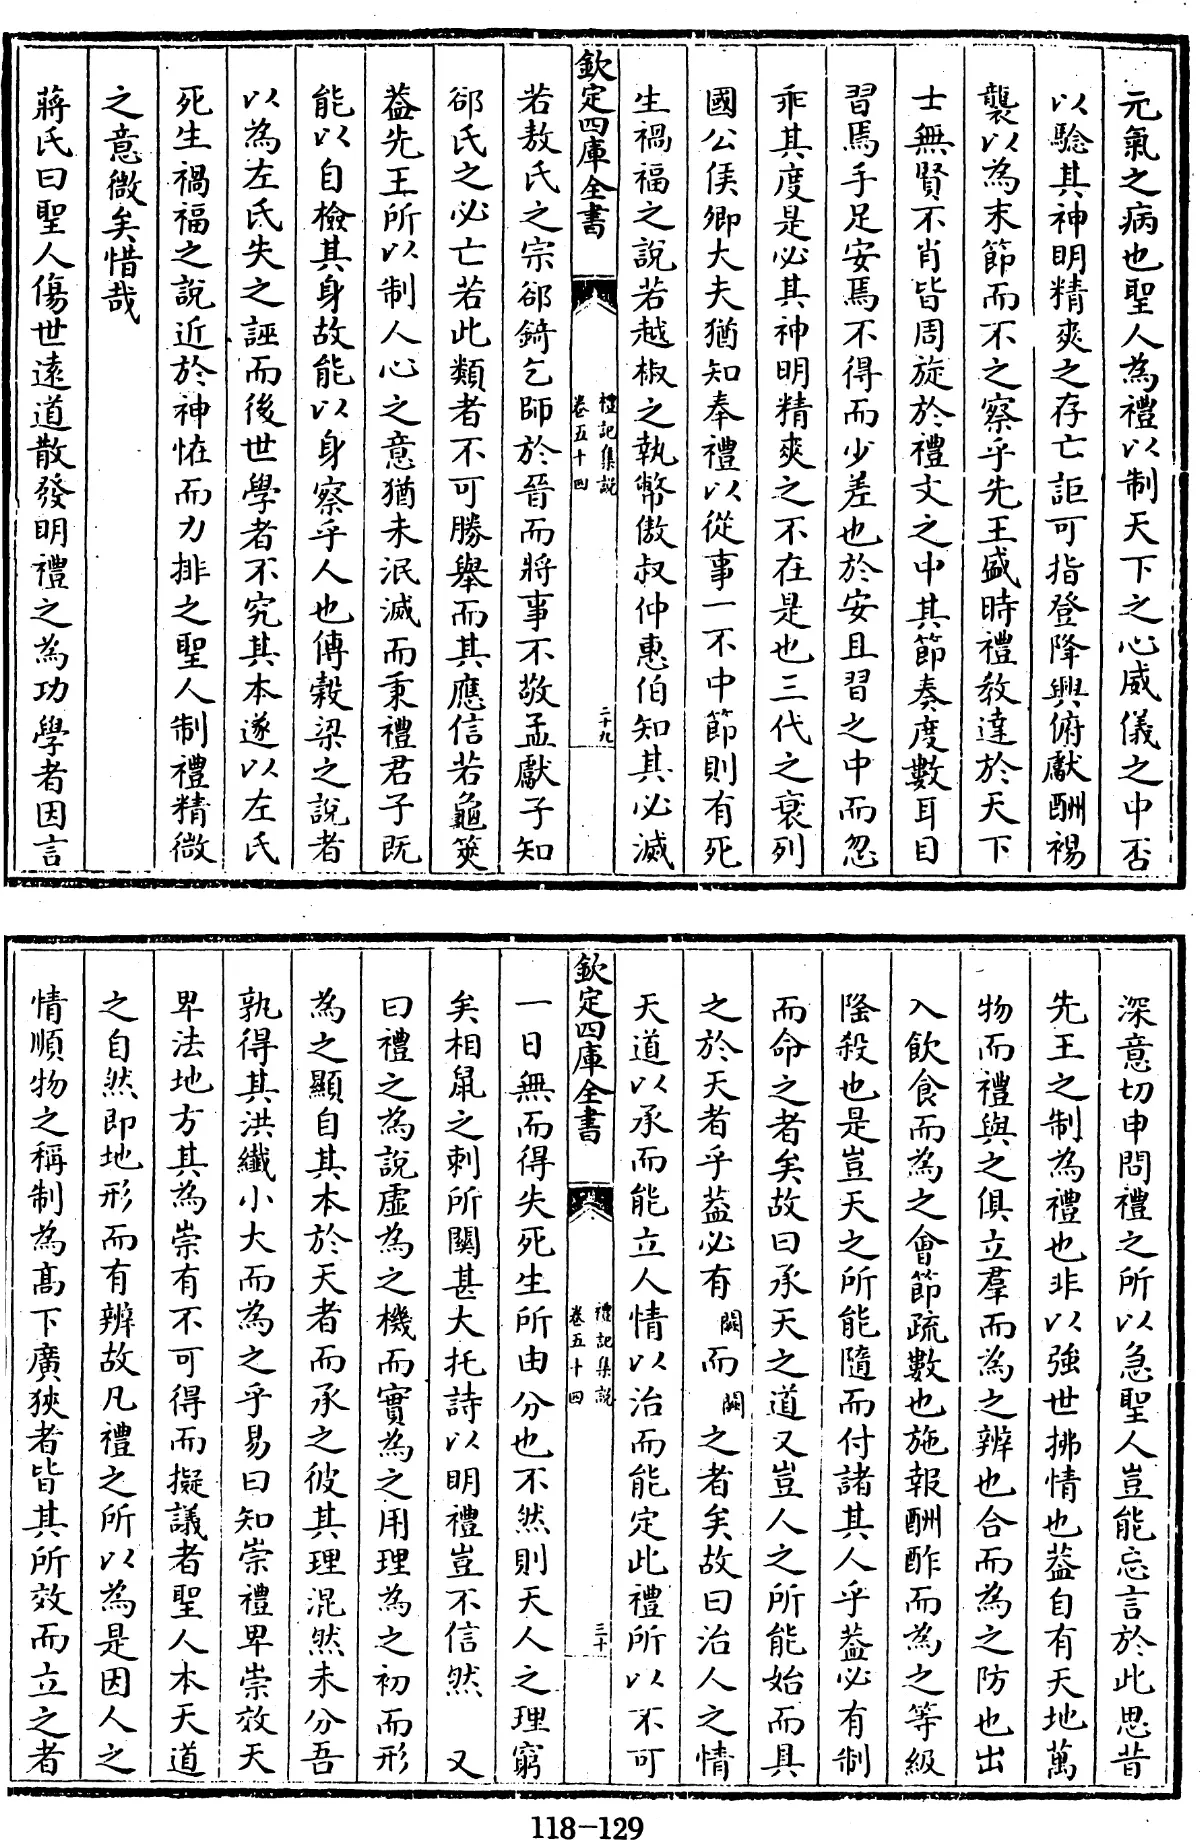 元氣之病也聖人為禮以制天下之心威儀之中否
以驗其神明精爽之存亡詎可指登降興俯獻酬裼
襲以為末節而不之察乎先王盛時禮教達於天下
士無賢不肖皆周旋於禮文之中其節奏度數耳目
習焉手足安焉不得而少差也於安且習之中而忽
乖其度是必其神明精爽之不在是也三代之衰列
國公侯卿大夫猶知奉禮以從事一不中節則有死
生禍福之說若越椒之執幣傲叔仲惠伯知其必滅
欽定四庫全書
禮記集說
卷五十四
二十九
若敖氏之宗郤錡乞師於晉而將事不敬孟獻子知
郤氏之必亡若此類者不可勝舉而其應信若龜筴
葢先王所以制人心之意猶未泯滅而秉禮君子既
能以自檢其身故能以身察乎人也傅榖梁之說者
以為左氏失之誣而後世學者不究其本遂以左氏
死生禍福之說近於神恠而力排之聖人制禮精微
之意微矣惜哉
蔣氏曰聖人傷世逺道散發明禮之為功學者因言
深意切申問禮之所以急聖人豈能忘言於此思昔
先王之制為禮也非以強世拂情也葢自有天地萬
物而禮與之俱立羣而為之辨也合而為之防也出
入飲食而為之會節疏數也施報酬酢而為之等級
隆殺也是豈天之所能隨而付諸其人乎葢必有制
而命之者矣故曰承天之道又豈人之所能始而具
之於天者乎葢必有闕而闕之者矣故曰治人之情
天道以承而能立人情以治而能定此禮所以不可
欽定四庫全書
禮記集說
卷五十四
三十
一日無而得失死生所由分也不然則天人之理窮
矣相鼠之刺所關甚大托詩以明禮豈不信然 又
曰禮之為說虛為之機而實為之用理為之初而形
為之顯自其本於天者而承之彼其理混然未分吾
孰得其洪纖小大而為之乎易曰知崇禮卑崇效天
卑法地方其為崇有不可得而擬議者聖人本天道
之自然即地形而有辨故凡禮之所以為是因人之
情順物之稱制為髙下廣狹者皆其所效而立之者
118-129